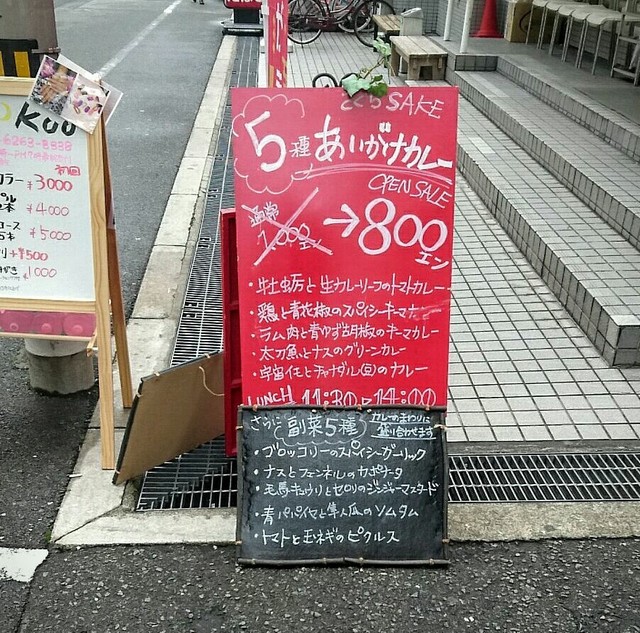 Koo
6263-8338
初回
カラー ¥3000
¥4000
¥5000
+¥500
¥1000
SAKE
5種 あいがけカレー
OPEN SALE
通常
→800エン
・牡蛎と生カレーリーフのトマトカレー
・鶏と青花椒のスパイシーキーマ
・ラム肉と青ゆず胡椒のキーマカレー
・太刀魚とナスのグリーンカレー
・宇宙イモとチャナダル(豆)のカレー
LUNCH 11:30-14:00
さらに 副菜5種 カレーのまわりに盛り合わせます
・ブロッコリーのスパイシーガーリック
・ナスとフェンネルのカポナータ
・毛馬キュウリとセロリのジンジャーマスタード
・青パパイヤと隼人瓜のソムタム
・トマトと玉ネギのピクルス